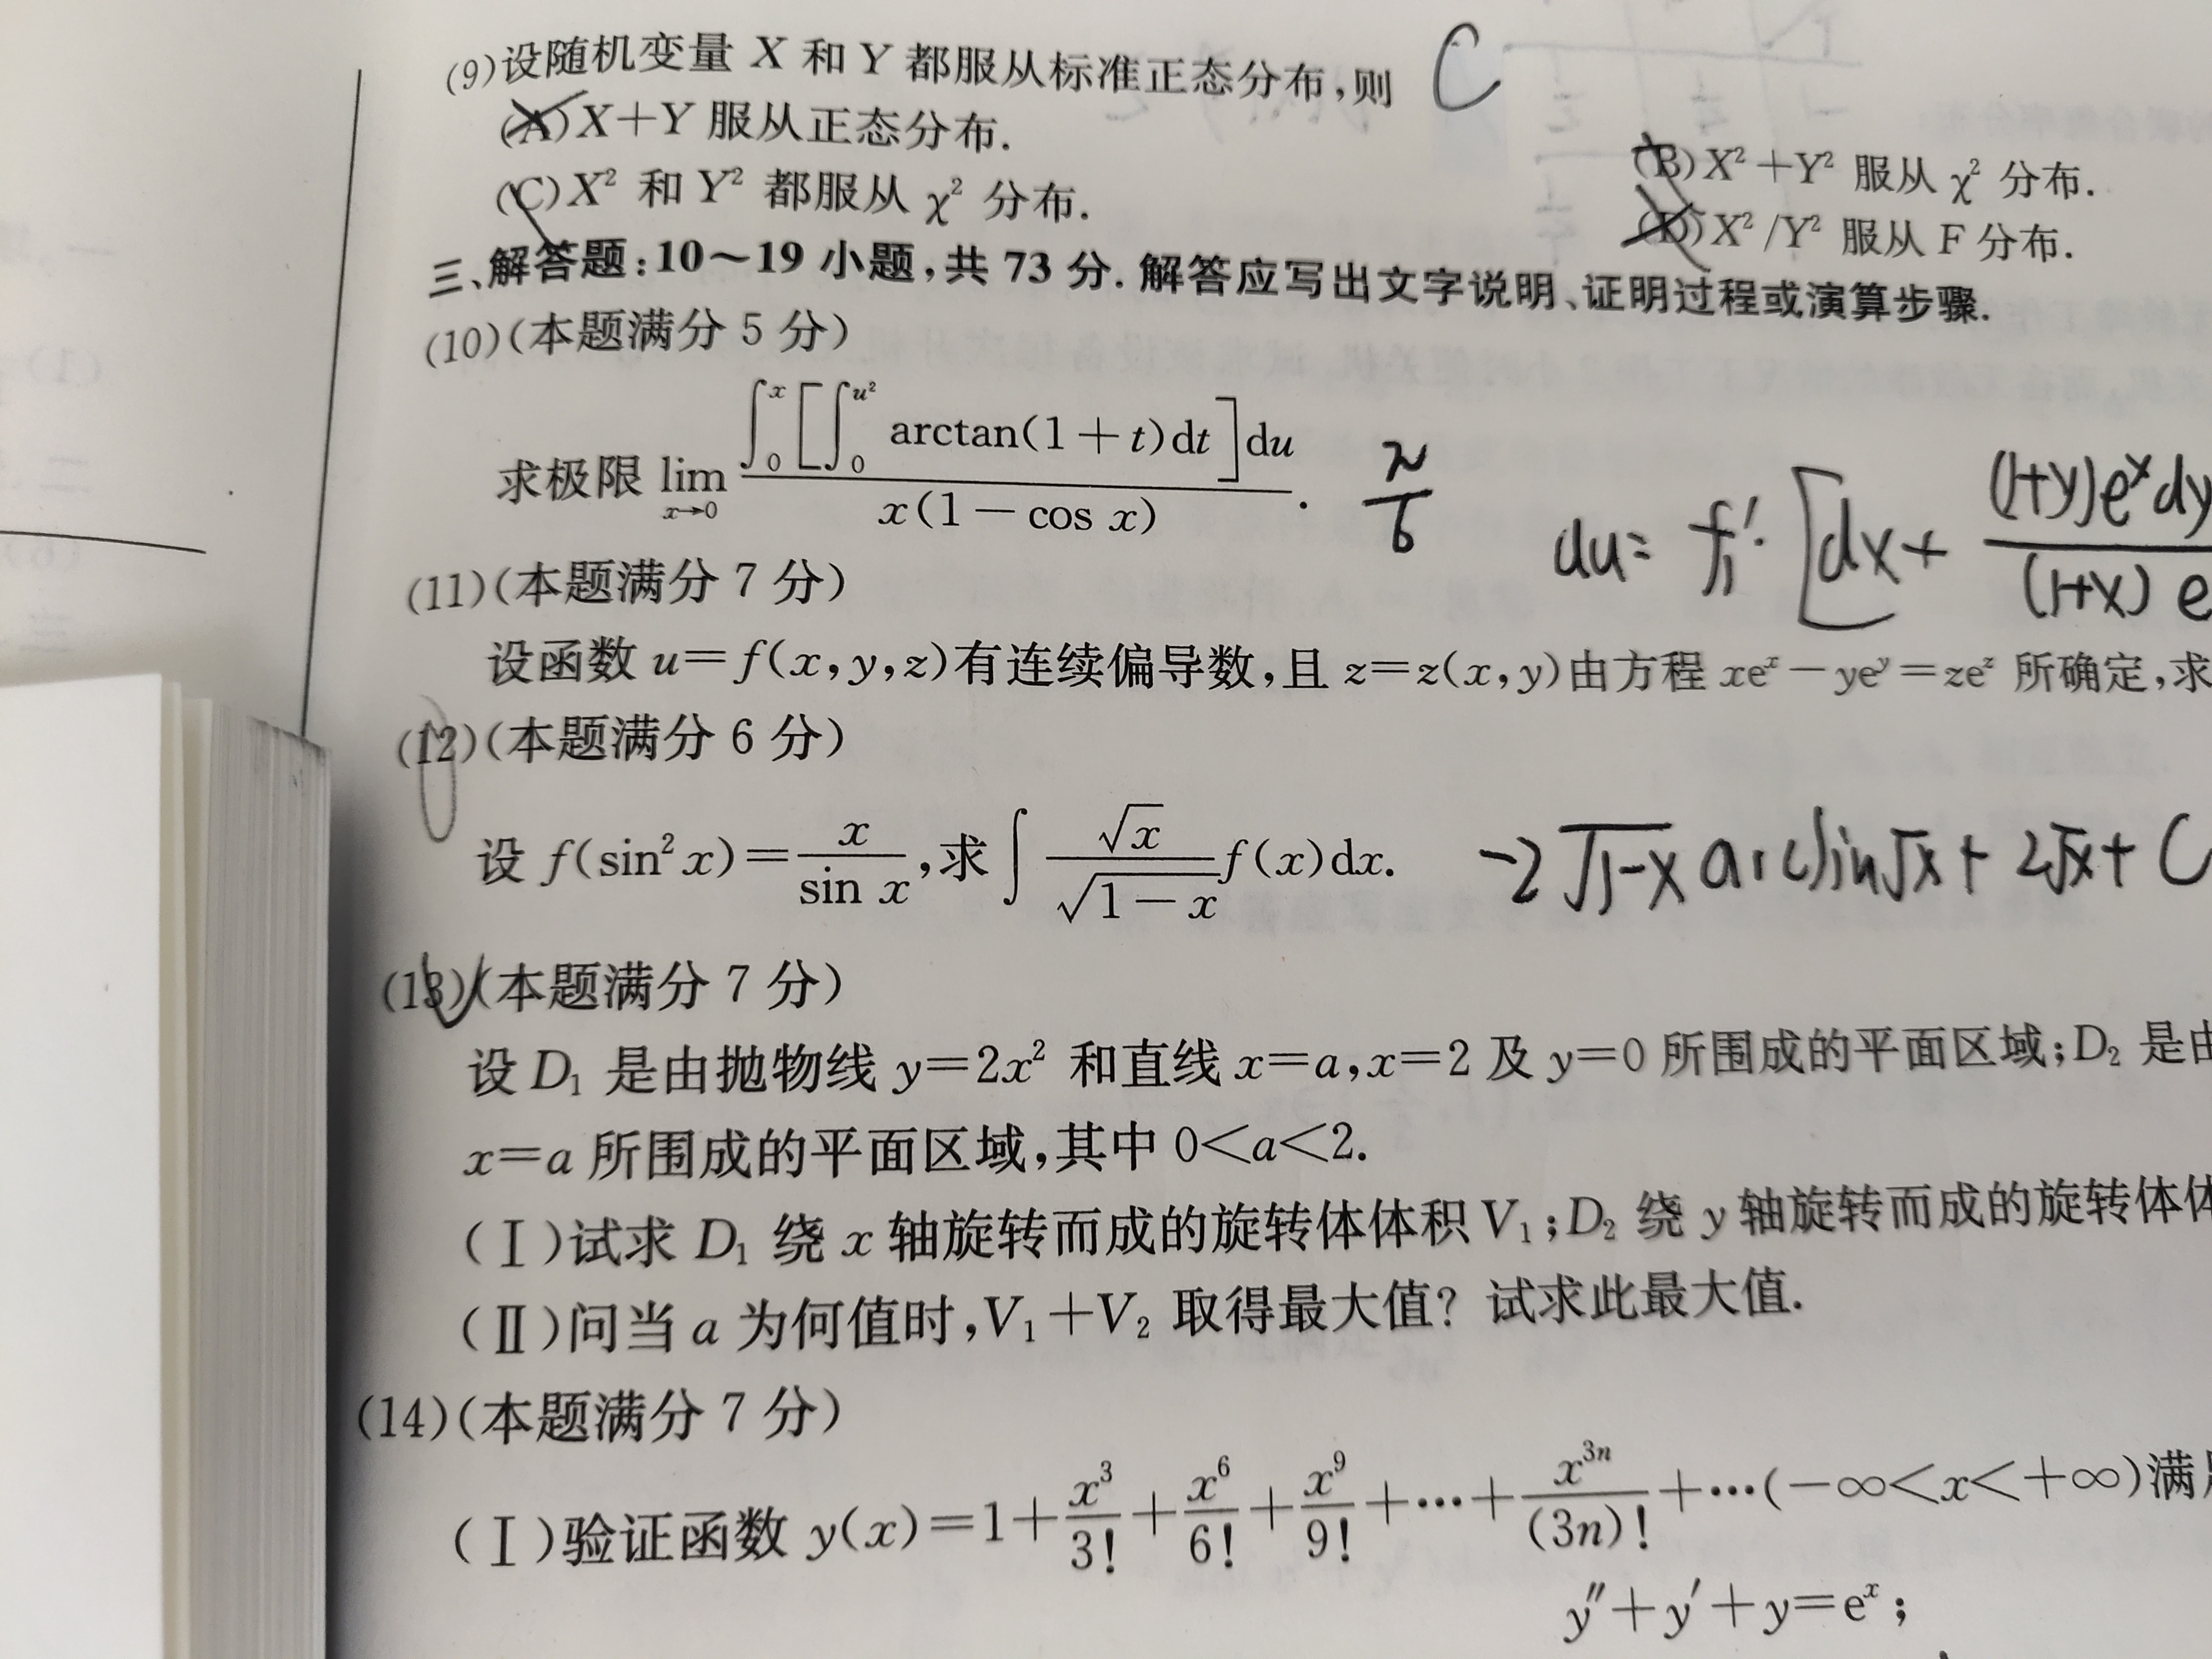 (9)设随机变量 X 和 Y 都服从标准正态分布,则 C
(A)X+Y 服从正态分布.
(B)X²+Y² 服从 χ² 分布.
(C)X² 和 Y² 都服从 χ² 分布.
(D)X²/Y² 服从 F 分布.
三、解答题:10~19 小题,共 73 分. 解答应写出文字说明、证明过程或演算步骤.
(10)(本题满分 5 分)
求极限 lim_{x→0} ∫_0^x [∫_0^{u²} arctan(1+t)dt]du / x(1-cos x) . π/6
du= f₁′·[dx+ (1+y)e^x dy / (1+x) e
(11)(本题满分 7 分)
设函数 u=f(x,y,z)有连续偏导数,且 z=z(x,y)由方程 xe^x-ye^y=ze^z 所确定,求
(12)(本题满分 6 分)
设 f(sin² x)= x / sin x ,求∫ √x / √(1-x) f(x)dx. -2√(1-x) arcsin√x + 2√x + C
(13)(本题满分 7 分)
设 D₁ 是由抛物线 y=2x² 和直线 x=a,x=2 及 y=0 所围成的平面区域;D₂ 是由
x=a 所围成的平面区域,其中 0<a<2.
(Ⅰ)试求 D₁ 绕 x 轴旋转而成的旋转体体积 V₁;D₂ 绕 y 轴旋转而成的旋转体体
(Ⅱ)问当 a 为何值时,V₁+V₂ 取得最大值? 试求此最大值.
(14)(本题满分 7 分)
(Ⅰ)验证函数 y(x)=1+ x³/3! + x⁶/6! + x⁹/9! +…+ x^{3n}/(3n)! +…(-∞<x<+∞)满
y″+y′+y=e^x;